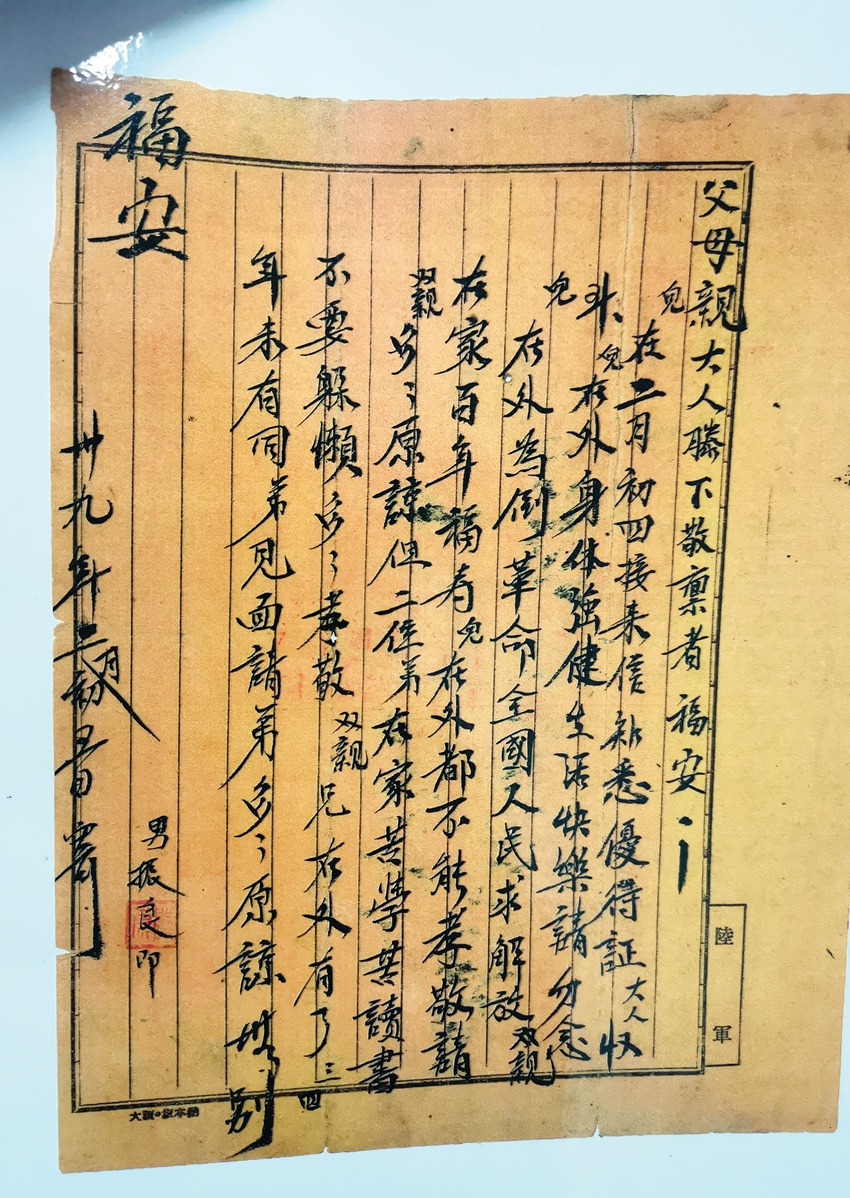 父母親大人膝下敬禀者福安
兒在二月初四接来信知悉優待証大人收
斗、兒在外身体強健生活快樂請勿念
兒在外為倒革命全國人民求解放双親
在家百年福寿兒在外都不能孝敬請
双親多々原諒但二位弟在家苦學苦讀書
不要躲懶多々孝敬双親兄在外有了三四
年未有同弟見面請弟多々原諒 别
福安
男振良印
卅九年二月初 書寄
陸軍